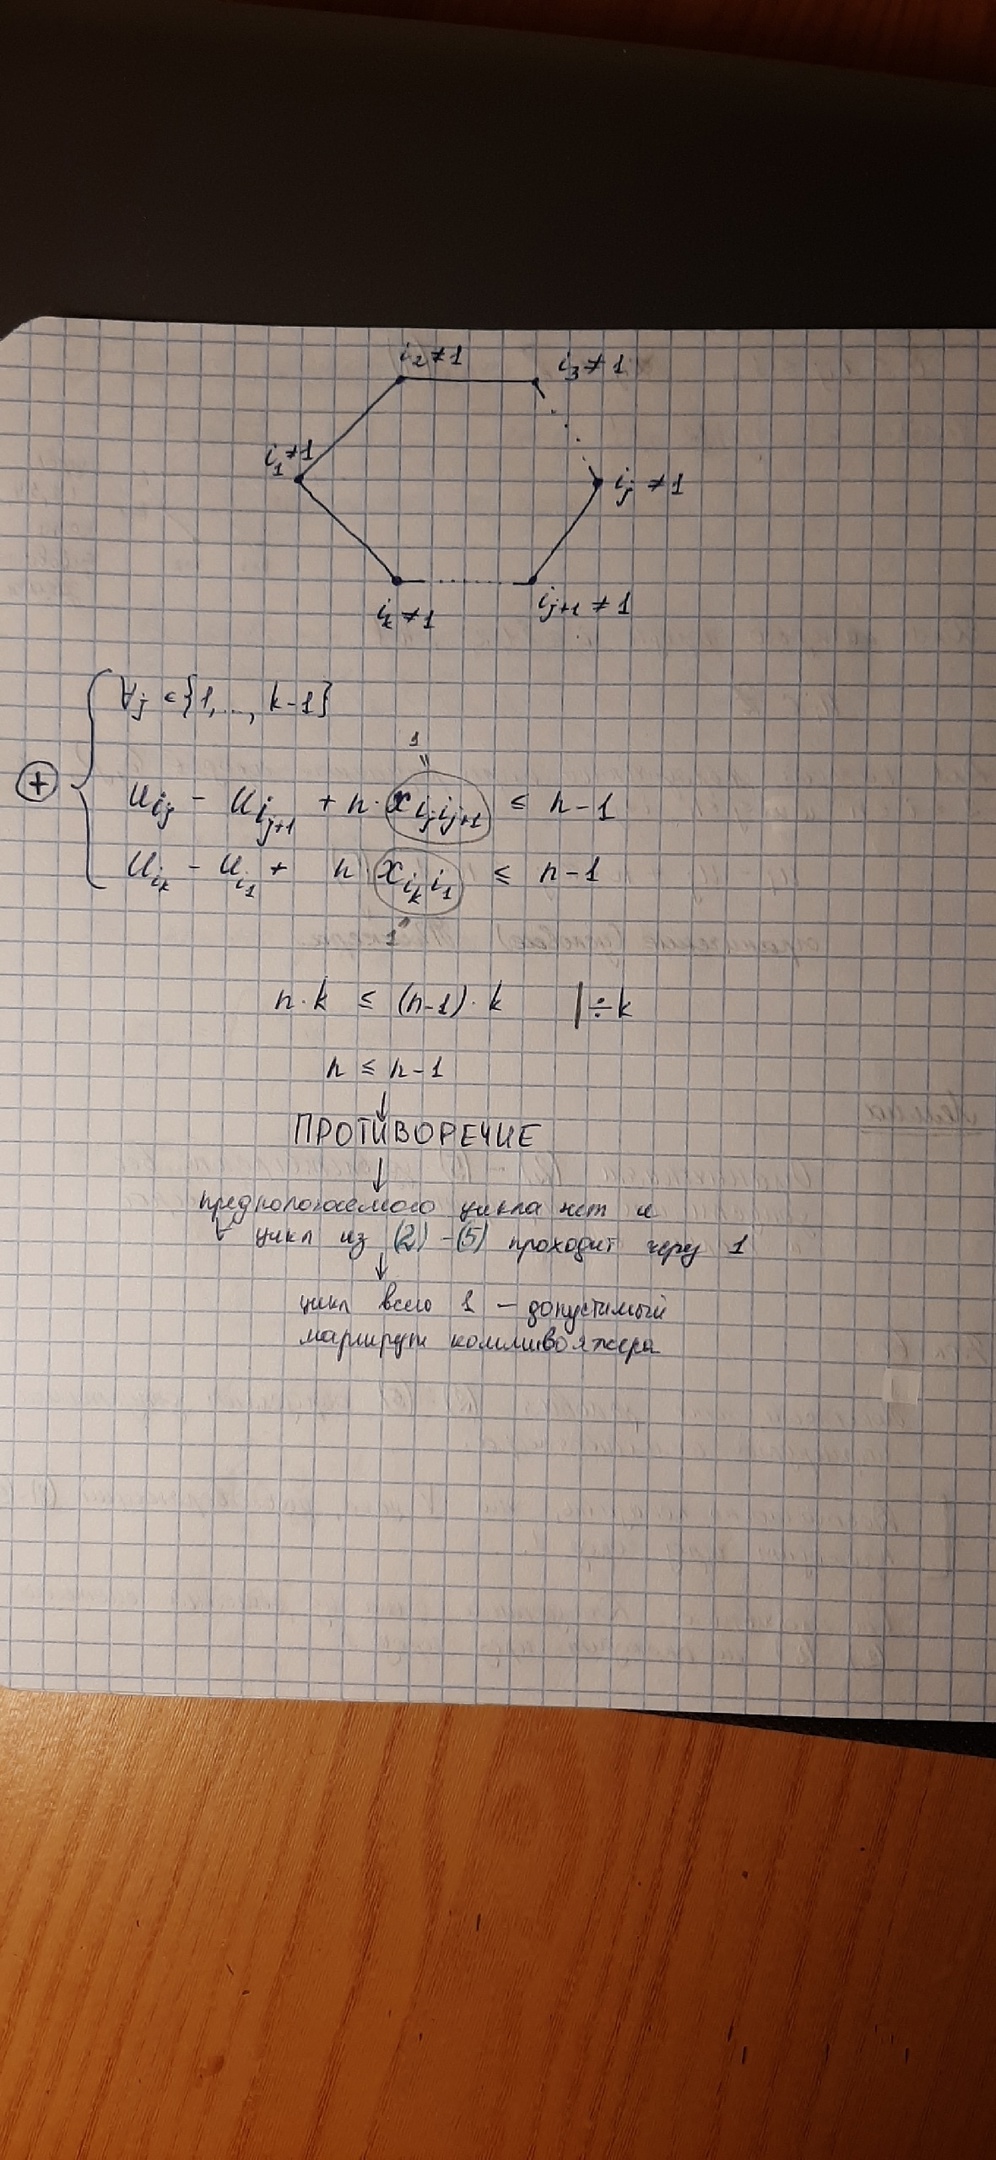 i₂ ≠ 1
i₃ ≠ 1
i₁ ≠ 1
iⱼ ≠ 1
iₖ ≠ 1
iⱼ₊₁ ≠ 1
∀j ∈ {1, ..., k-1}
1
"
+
u_{i_j} - u_{i_{j+1}} + n · x_{i_j i_{j+1}} ≤ n-1
u_{i_k} - u_{i_1} + n x_{i_k i_1} ≤ n-1
"
1
n · k ≤ (n-1) · k | ÷ k
n ≤ n-1
↓
ПРОТИВОРЕЧИЕ
↓
предполагаемого цикла нет и
∀ цикл из (2) - (5) проходит через 1
↓
цикл всего 1 – допустимый
маршрут коммивояжера